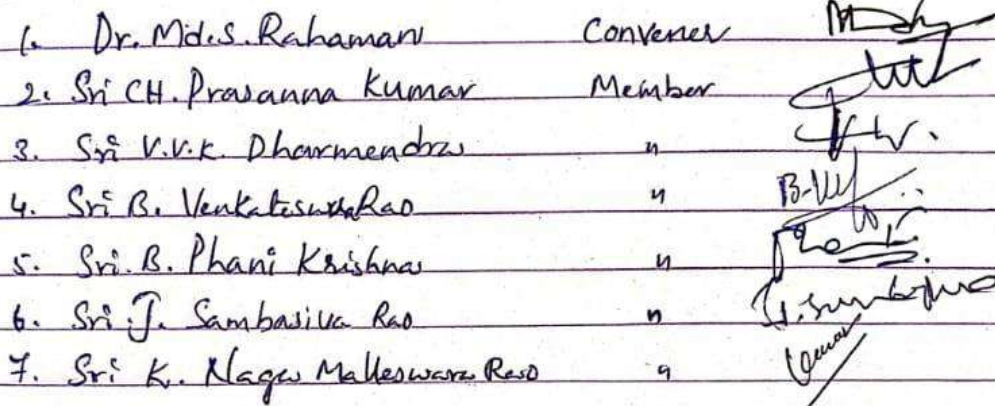 1. Dr. Md.S. Rahaman Convener
2. Sri CH. Prasanna Kumar Member
3. Sri V.V.K. Dharmendra "
4. Sri B. Venkateswara Rao "
5. Sri. B. Phani Krishna "
6. Sri J. Sambasiva Rao "
7. Sri K. Naga Malleswara Rao "